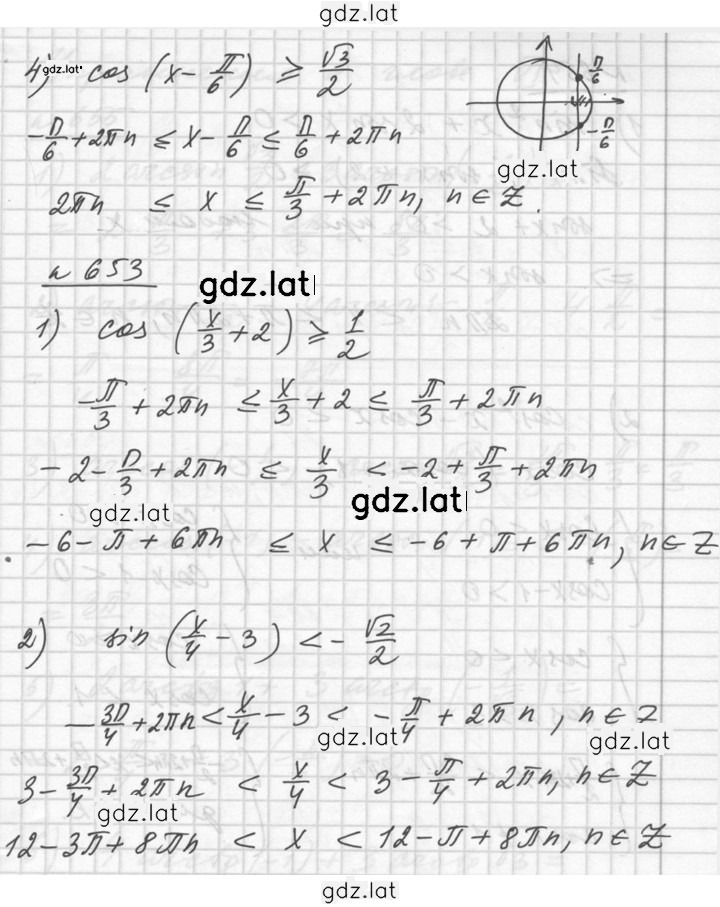 gdz.lat
4) cos (x - π/6) ⩾ √3/2
gdz.lat
π/6
-π/6
gdz.lat
-π/6 + 2πn ≤ x - π/6 ≤ π/6 + 2πn
2πn ≤ x ≤ π/3 + 2πn, n ∈ Z.
n 653
gdz.lat
1) cos (x/3 + 2) ⩾ 1/2
-π/3 + 2πn ≤ x/3 + 2 ≤ π/3 + 2πn
-2 - π/3 + 2πn ≤ x/3 < -2 + π/3 + 2πn
gdz.lat
gdz.lat
-6 - π + 6πn ≤ x ≤ -6 + π + 6πn, n ∈ Z
2) sin (x/4 - 3) < -√2/2
-3π/4 + 2πn < x/4 - 3 < -π/4 + 2πn, n ∈ Z
gdz.lat
gdz.lat
3 - 3π/4 + 2πn < x/4 < 3 - π/4 + 2πn, n ∈ Z
gdz.lat
12 - 3π + 8πn < x < 12 - π + 8πn, n ∈ Z
gdz.lat